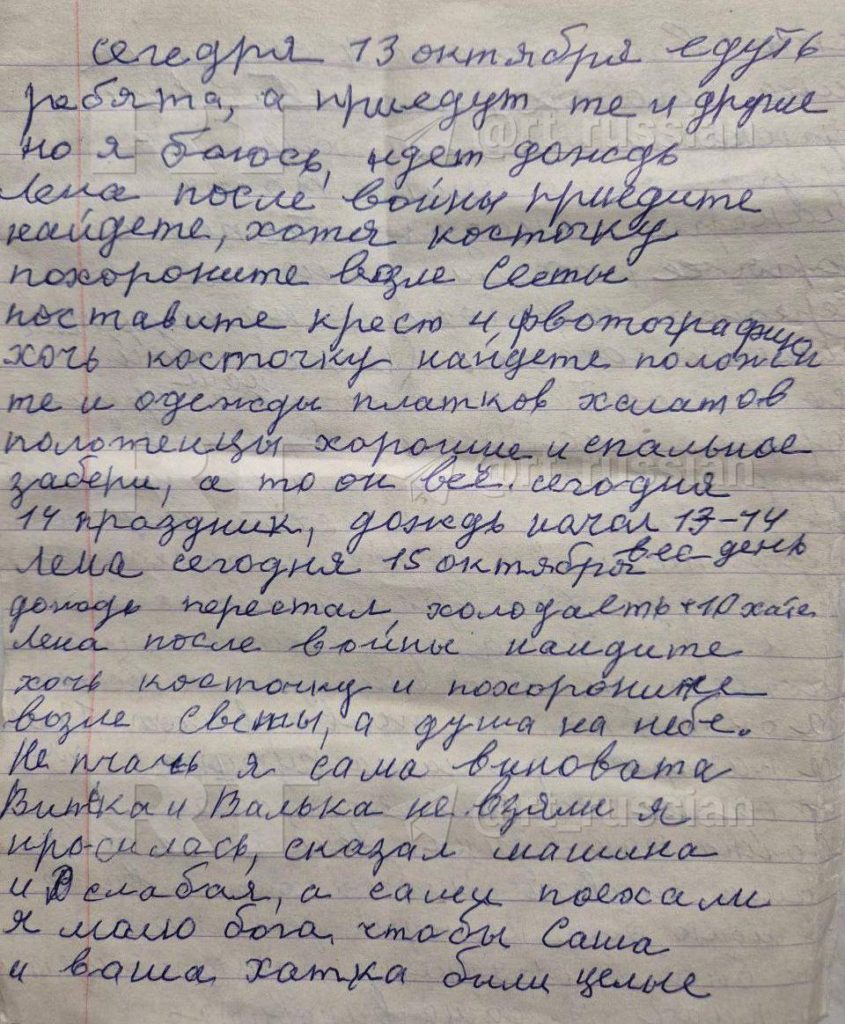 сегедря 13 октября едуть
ребята, а приедут те и другие
но я боюсь, идет дождь
Лена после войны приедите
найдете, хотя косточку
похороните возле Светы
поставите крест и фвотографию
хочь косточку найдете положи
те и одежды платков халатов
полотенцы хорошие и спальное
забери, а то он всё. сегодня
14 праздник, дождь начал 13-14
Лена сегодня 15 октября вес день
дождь перестал, холодаеть +10 хате
Лена после войны наидите
хочь косточку и похороните
возле Светы, а душа на небе.
Не плачь я сама виновата
Витька и Валька не взяли я
просилась, сказал машина
и слабая, а сами поехали
я малю бога, чтобы Саша
и ваша хатка были целые
RT @rt_russian
RT @rt_russian
RT @rt_russian